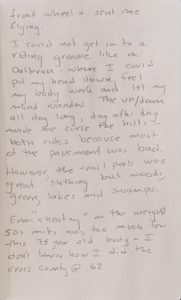 front wheel + sent me
flying.
I could not get in to a
riding groove like on
Oatbran where I could
put my head down, feel
my body work and let my
mind wander. The up/down
all day long, day after day
made me curse the hills -
both sides because most
of the pavement was bad.
However, the trail part were
great. Nothing but woods,
green, lakes and swamps.
Even "cheating" on the weight
50+ miles was too much for
this 75 year old body - I
don't know how I did the
cross county @ 62